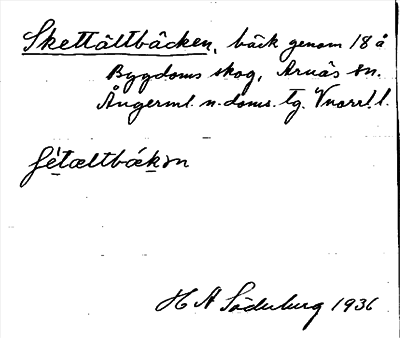 Skettåltbäcken, bäck genom 18 å
Bygdoms skog, Arnäs sn.
Ångerml. n. doms. tg. Vnorrl. l.
H A Söderberg 1936